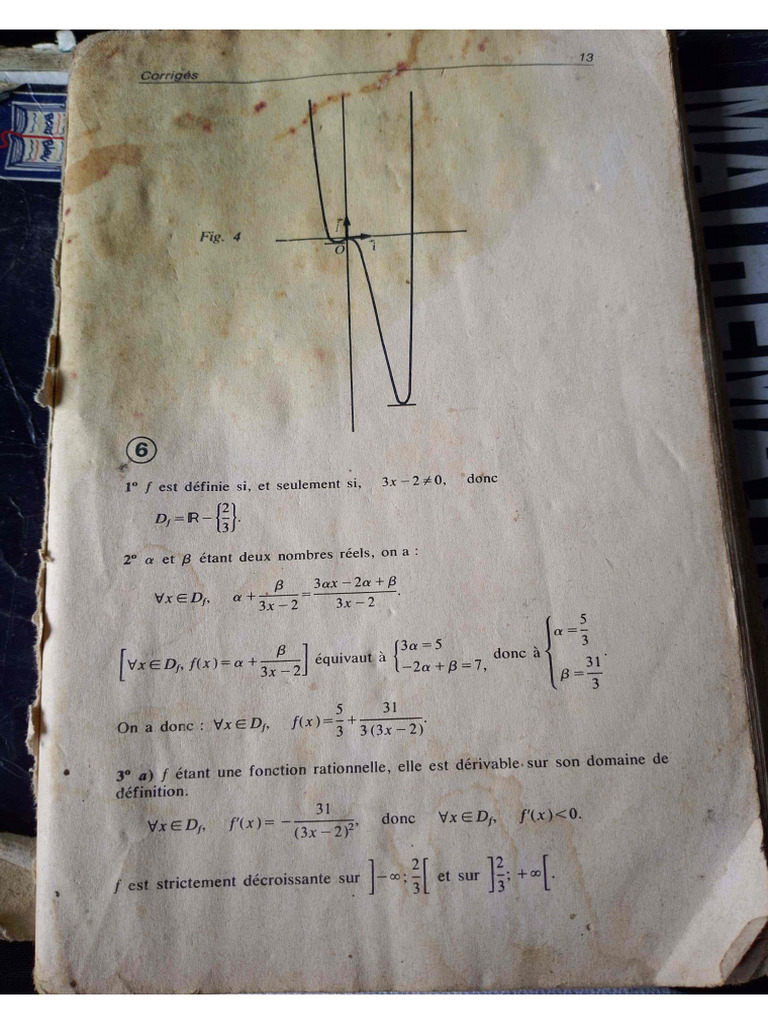 Corrigés
13
Fig. 4
j
O
i
6
1º f est définie si, et seulement si, 3x – 2 ≠ 0, donc
D_f = ℝ – {2/3}.
2º α et β étant deux nombres réels, on a :
∀x ∈ D_f, α + β/(3x – 2) = (3αx – 2α + β)/(3x – 2).
[∀x ∈ D_f, f(x) = α + β/(3x – 2)] équivaut à {3α = 5 ; –2α + β = 7, donc à {α = 5/3 ; β = 31/3.
On a donc : ∀x ∈ D_f, f(x) = 5/3 + 31/(3(3x – 2)).
3º a) f étant une fonction rationnelle, elle est dérivable sur son domaine de
définition.
∀x ∈ D_f, f'(x) = – 31/(3x – 2)², donc ∀x ∈ D_f, f'(x) < 0.
f est strictement décroissante sur ]–∞ ; 2/3[ et sur ]2/3 ; +∞[.